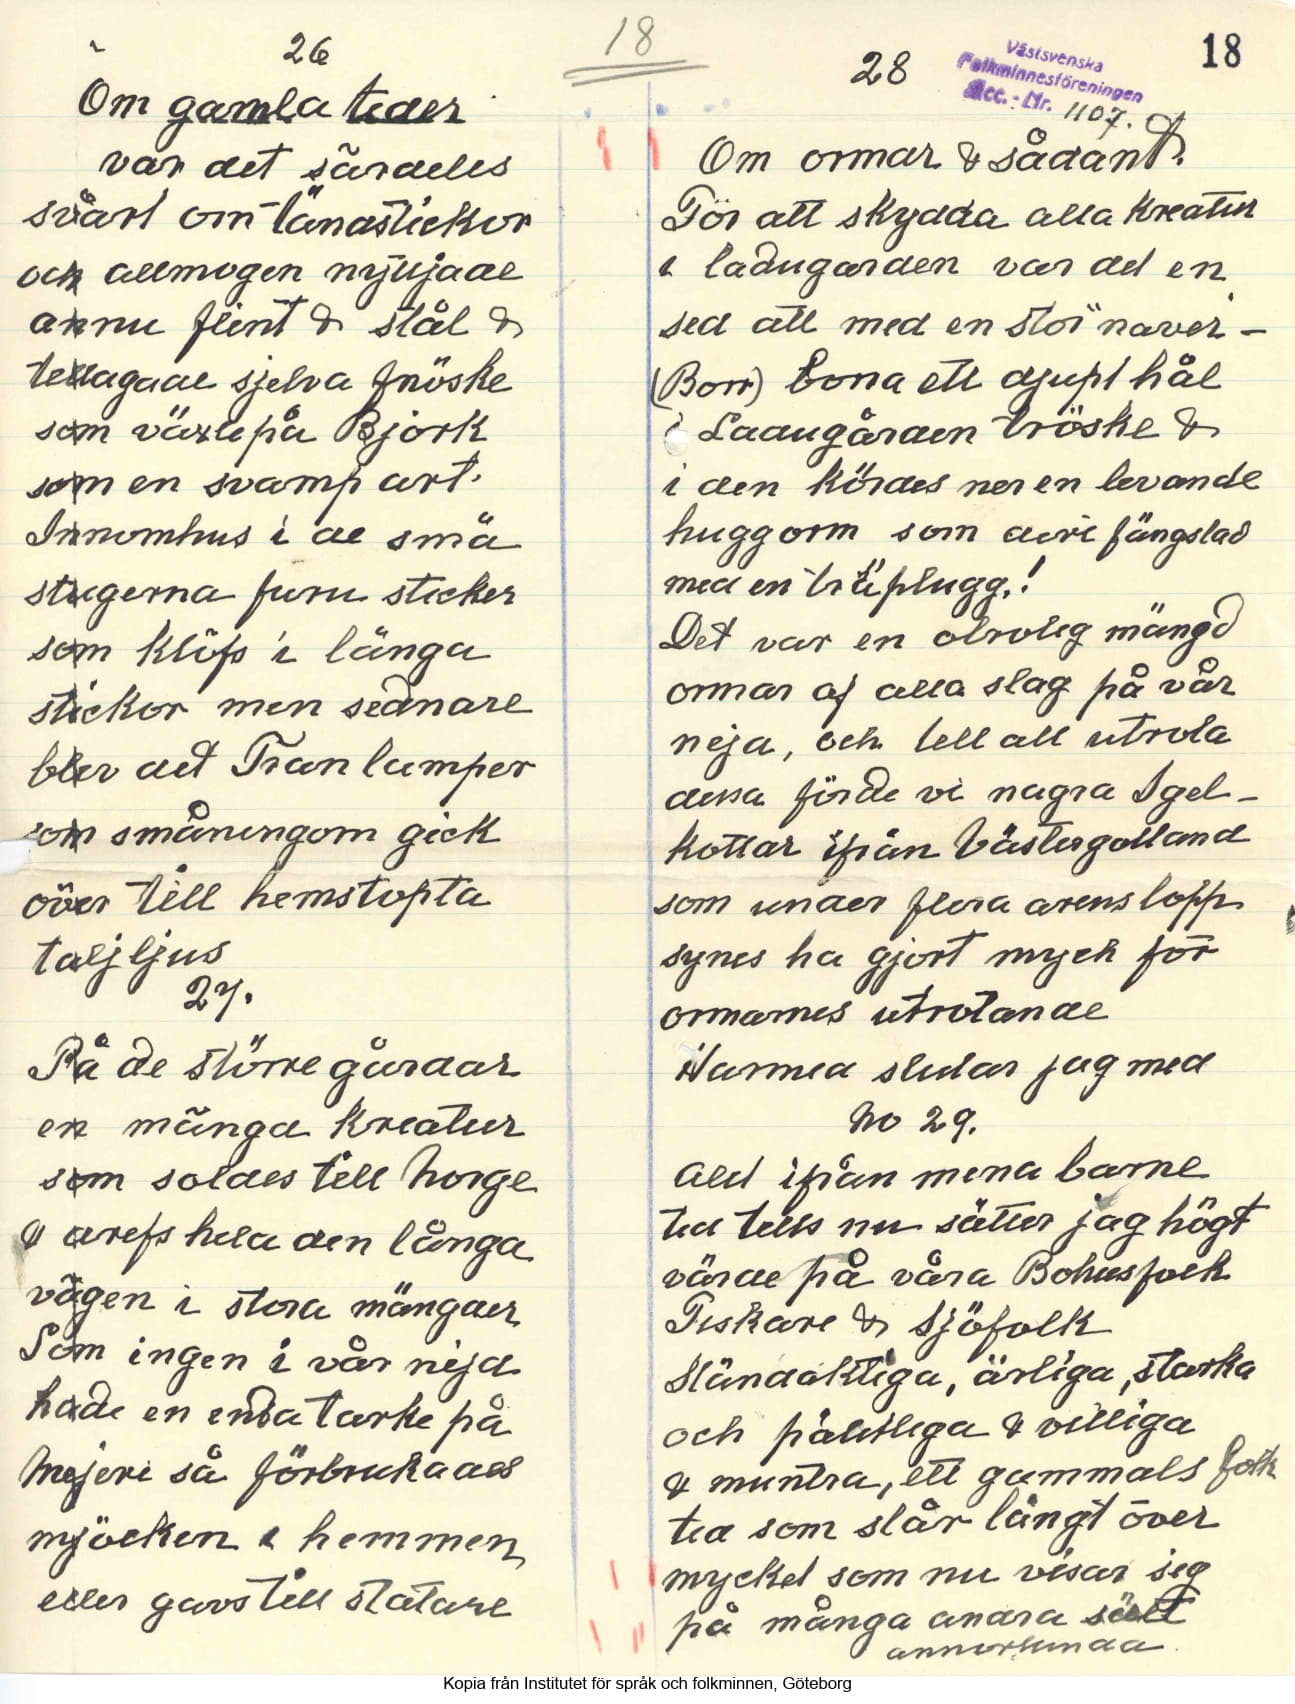 18
18
Västsvenska
Folkminnesföreningen
Acc. - Nr. 1107.
26
Om gamla tider
var det särdeles
svårt om tändstickor
och allmogen nyttjade
ännu flint & stål &
tillagade sjelva fnöske
som växte på Björk
som en svamp art.
Innomhus i de små
stugerna furu sticker
som klöfs i långa
stickor men sednare
blev det Tran lamper
som småningom gick
över till hemstöpta
taljljus
27.
På de större gårdar
en mänga kreatur
som soldes till Norge
& drefs hela den långa
vägen i stora mängder
Som ingen i vår nejd
hade en enda tanke på
Mejeri så förbrukades
mjöcken i hemmen
eller gavs till statare
28
Om ormar & sådant.
För att skydda alla kreatur
i ladugarden var det en
sed att med en stor naver -
(Borr) borra ett djupt hål
i Ladugården tröske &
i den kördes ner en levande
huggorm som devi fängslad
med en träplugg.!
Det var en otrolig mängd
ormar af alla slag på vår
nejd, och till att utrota
dessa förde vi nagra Igel-
kottar ifrån Västergötland
som under flera arens lopp
synes ha gjort myck för
ormarnes utrotande
Härmed slutar jag med
No 29.
alt ifrån mina barne
tid tills nu sätter jag högt
värde på våra Bohusfolk
Fiskare & Sjöfolk
Ståndaktiga, ärliga, starka
och pålitliga & villiga
& muntra, ett gammals folk
tid som slår långt över
myckel som nu visar sig
på många andra sätt
annorlunda
Kopia från Institutet för språk och folkminnen, Göteborg